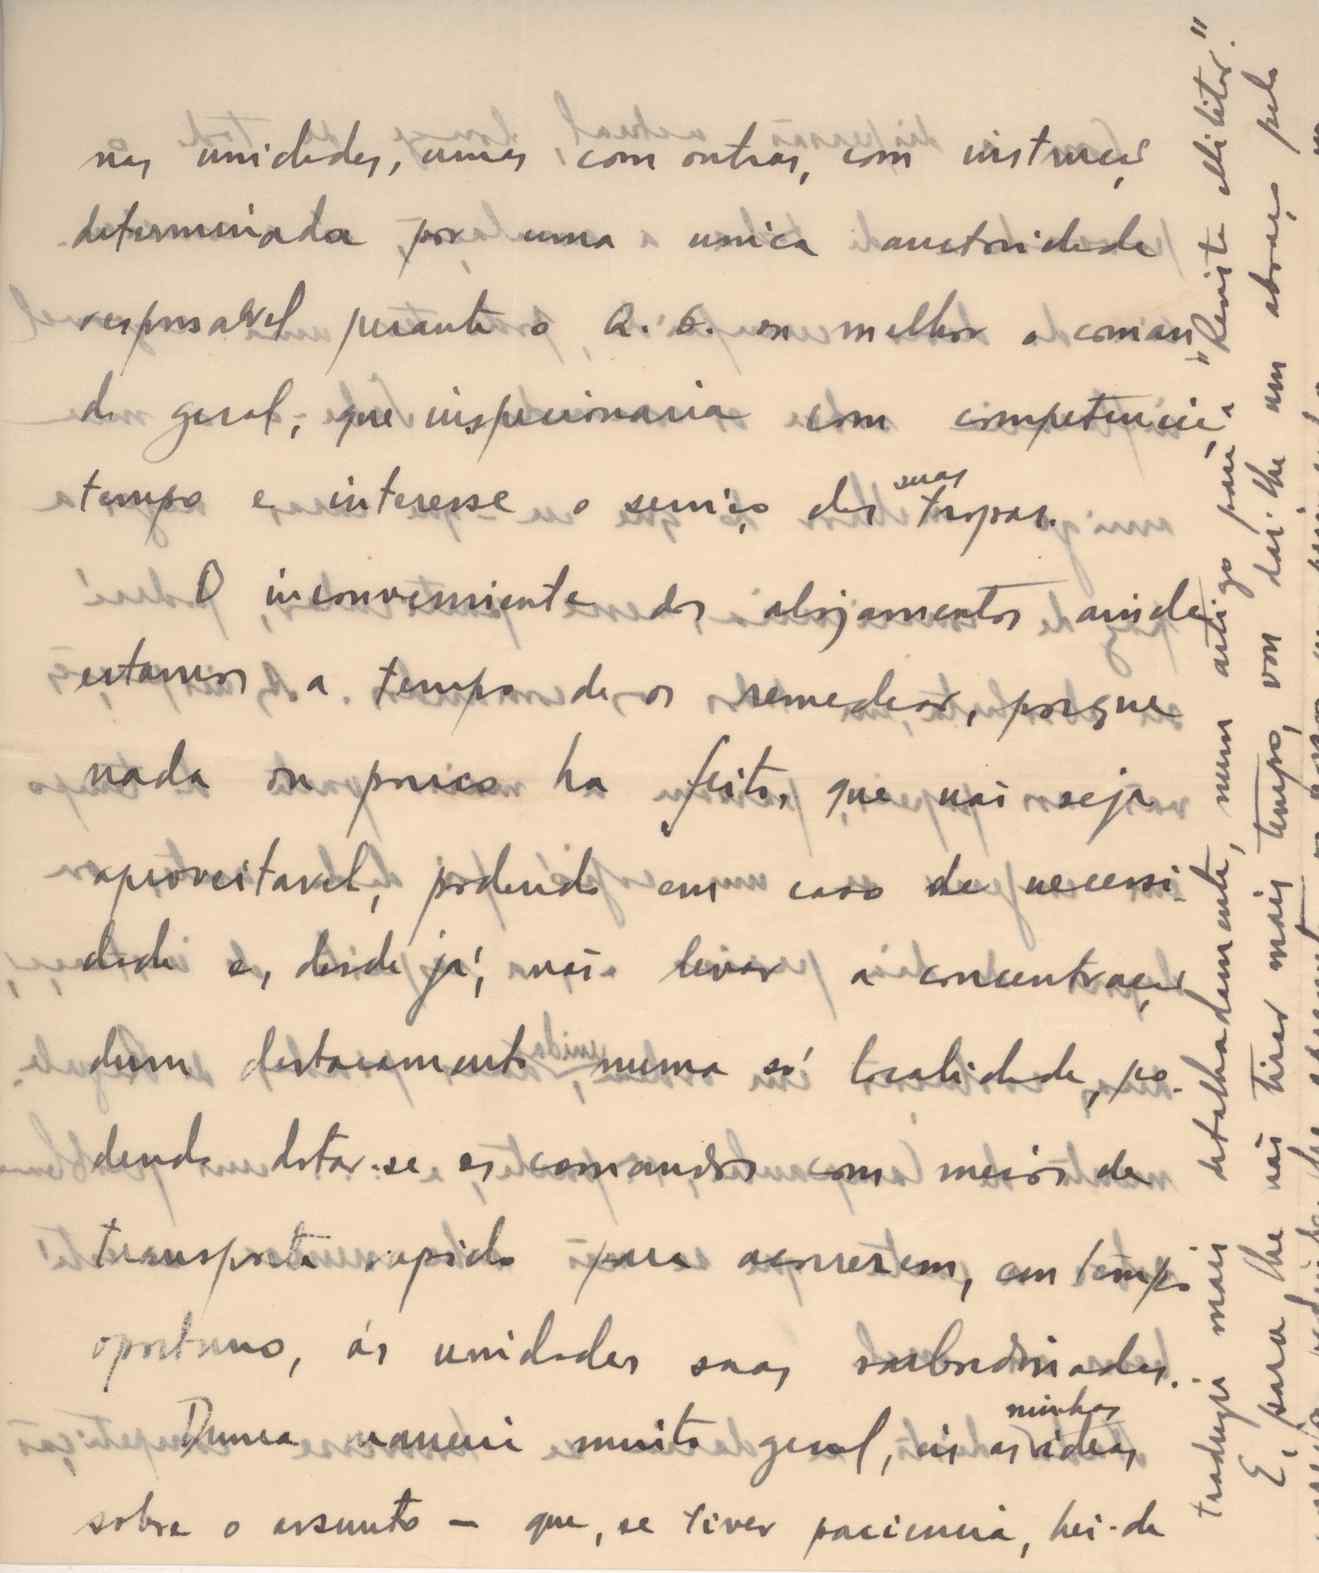 nas unidades, umas com outras, com instrução
determinada por uma unica auctoridade
responsavel perante o Q. G. ou melhor o coman
do geral, que inspecionaria com competencia,
tempo e interesse o serviço das suas tropas.
O inconveniente dos alojamentos ainda
estamos a tempo de os remedear, porque
nada ou pouco ha feito, que não seja
aproveitavel, podendo em caso de necessi-
dade e, desde já, não levar á concentração
dum destacamento numa só localidade, po-
dendo dotar-se os comandos com meios de
transporte rapido para acorrerem, em tempo
oportuno, ás unidades suas subordinadas.
Duma maneira muito geral, eis as minhas ideas
sobre o assunto – que, se tiver paciencia, hei-de
traduzir mais detalhadamente, num artigo para a "Revista Militar."
E, para lhe não tirar mais tempo, vou dar-lhe um abraço pela